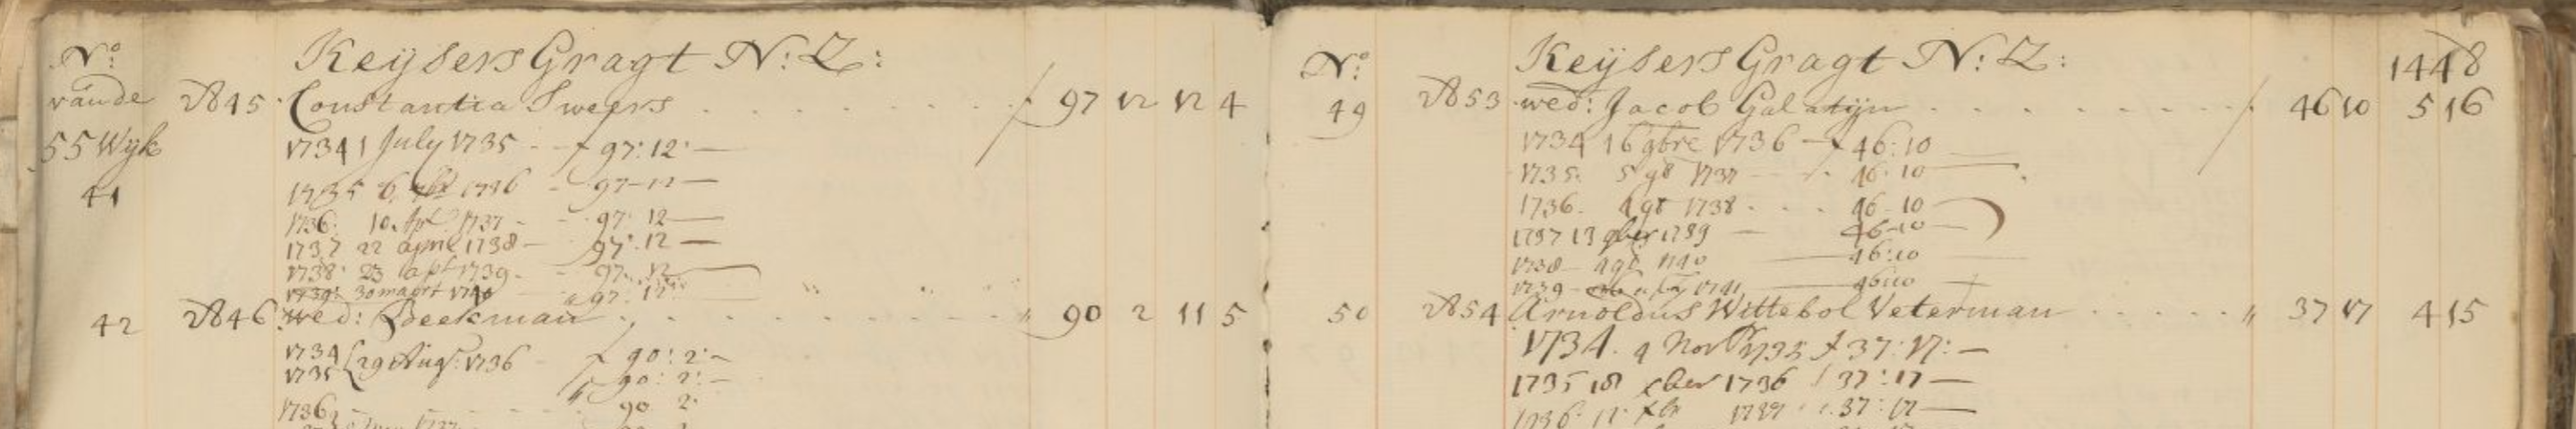 No:
Keijsers Gragt N: Z:
van de 2845 Constantia Sweers 97 12 12 4
55 Wyk 1734 1 July 1735 - ƒ 97:12:—
41
1735 6 1736 - 97-12—
1736. 10. Apl 1737 - 97:12—
1737 22 april 1738 — 97:12—
1738: 23 apl 1739. - 97:12
1739: 30 maart 1740 97:12
42 2846 wed: Beekman 90 2 11 5
1734 29 Aug: 1736 ƒ 90:2:—
1735 90:2:—
1736 90 2:
1737
No:
Keijsers Gragt N: Z: 1448
49 2853 wed: Jacob Galatijn 46 10 5 16
1734 16 9bre 1736 — ƒ 46:10
1735. 5 1737 46:10
1736. 1738 46-10
1737 13 1739 — 46-10
1738 1740 46:10
1739 1741 46:10
50 2854 Arnoldus Wittebol Veterman „ 37 17 4 15
1734. 9 Nov 1735 ƒ 37:17:—
1735 18 1736 ƒ 37:17—
1736. 37:17—